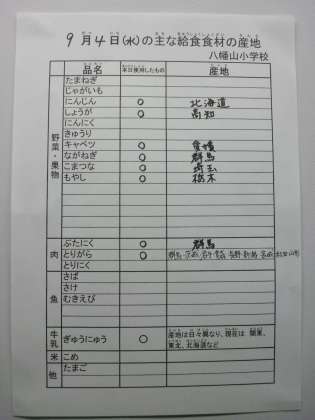 9月4日(水)の主な給食食材の産地
八幡山小学校
品名 本日使用したもの 産地
野菜・果物
たまねぎ
じゃがいも
にんじん ○ 北海道
しょうが ○ 高知
にんにく
きゅうり
キャベツ ○ 愛媛
ながねぎ ○ 群馬
こまつな ○ 埼玉
もやし ○ 栃木
肉
ぶたにく ○ 群馬
とりがら ○
とりにく
魚
さば
さけ
むきえび
牛乳
ぎゅうにゅう ○ 産地は日々異なり、現在は 関東、
東北、北海道など
米 こめ
他 たまご